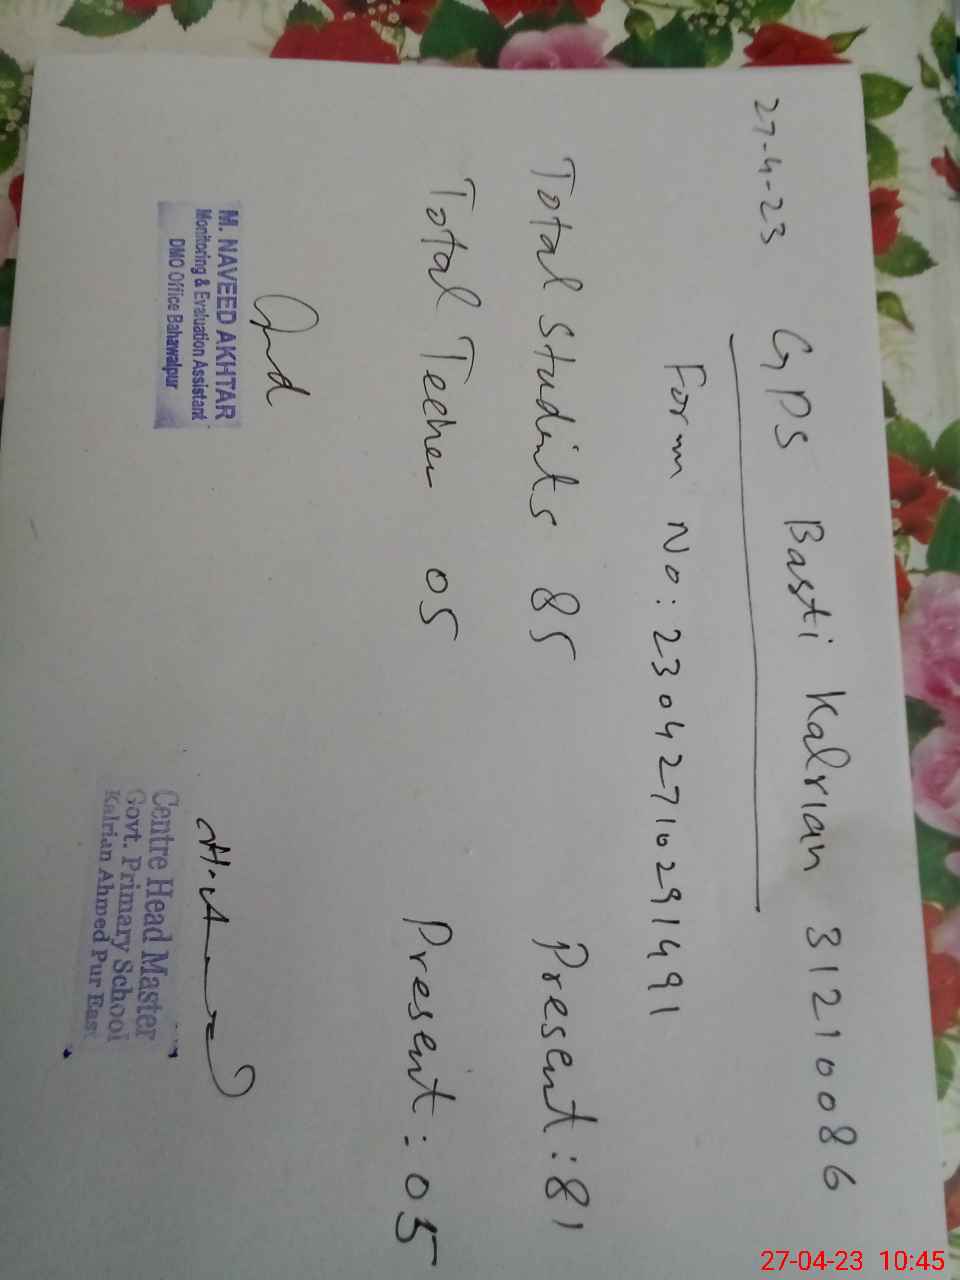 27-4-23 GPS Basti Kalrian 31210086
Form No: 23042710291491
Total Students 85 Present: 81
Total Teecher 05 Present: 05
M. NAVEED AKHTAR
Monitoring & Evaluation Assistant
DMO Office Bahawalpur
Centre Head Master
Govt. Primary School
Kalrian Ahmed Pur East
27-04-23 10:45